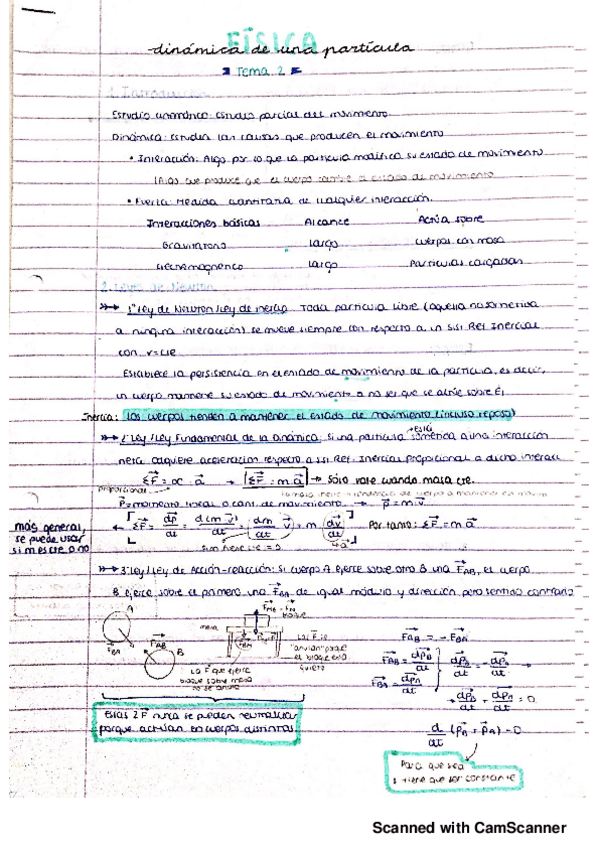 FÍSICA
dinámica de una partícula
Tema 2
1. Introducción
Estudio cinemático: Estudio parcial del movimiento
Dinámica: Estudia las causas que producen el movimiento
• Interacción: Algo por lo que la partícula modifica su estado de movimiento
(Algo que produce que el cuerpo cambie estado de movimiento
• Fuerza: Medida cuantitativa de cualquier interacción.
Interacciones básicas Alcance Actúa sobre
Gravitatoria largo cuerpos con masa
Electromagnético largo Partículas cargadas
2. Leyes de Newton
1ª Ley de Newton/Ley de inercia Toda partícula libre (aquella no sometida
a ninguna interacción) se mueve siempre con respecto a un sist Ref Inercial
con v=cte
Establece la persistencia en el estado de movimiento de la partícula, es decir,
un cuerpo mantiene su estado de movimiento a no ser que se actúe sobre Él
Inercia: los cuerpos tienden a mantener el estado de movimiento (incluso reposo)
está
2ª Ley/Ley Fundamental de la Dinámica: si una partícula sometida a una interacción
neta adquiere aceleración respecto a sist Ref. Inercial proporcional a dicha interacc
ΣF = ∝ · a → ΣF = m·a → Sólo vale cuando masa cte.
proporcional
P = momento lineal o cant. de movimiento → p = m·v
más general, se puede usar si m es cte o no ← ΣF = dp/dt = d(mv)/dt = dm/dt v = m · dv/dt Por tanto: ΣF = m a
si m fuere cte = 0 a
3ª Ley/Ley de Acción-reacción: Si cuerpo A ejerce sobre otro B una FAB, el cuerpo
B ejerce sobre el primero una FBA de igual módulo y dirección, pero sentido contrario
A
FBA
FAB
B
mesa
bloque
La F que ejerce
bloque sobre mesa
no se anula
Las F se
"anulan" porque
el bloque está
quieto
FAB = - FBA
FAB = dpB/dt
FBA = dpA/dt
dpB/dt = - dpA/dt
→ dpB/dt + dpA/dt = 0
d/dt (PB + PA) = 0
Estas 2 F nunca se pueden neutralizar
porque actúan en cuerpos distintos
Para que sea
tiene que ser constante
Scanned with CamScanner